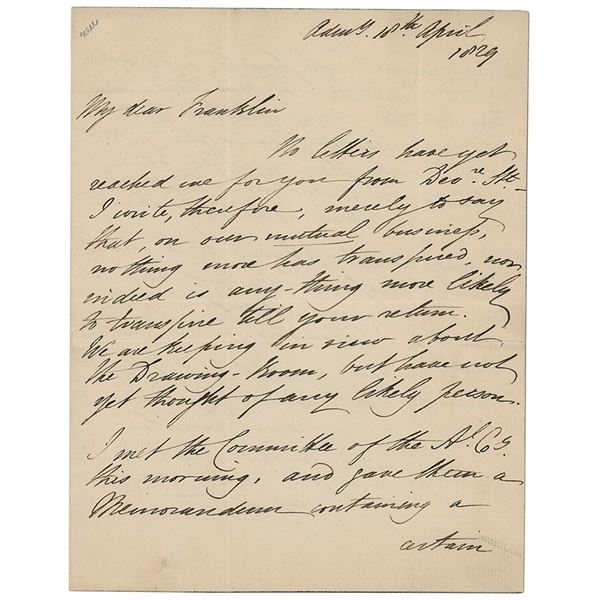 Admy. 18th April
1829
My dear Franklin
No letters have yet
reached me for you from Devre. Stt.
I write, therefore, merely to say
that, on our mutual business,
nothing more has transpired, nor
indeed is any-thing more likely
to transpire till your return.
We are keeping in view about
the Drawing-Room, but have not
yet thought of any likely person.
I met the Committee of the Al. Co.
this morning, and gave them a
Memorandum containing a
certain